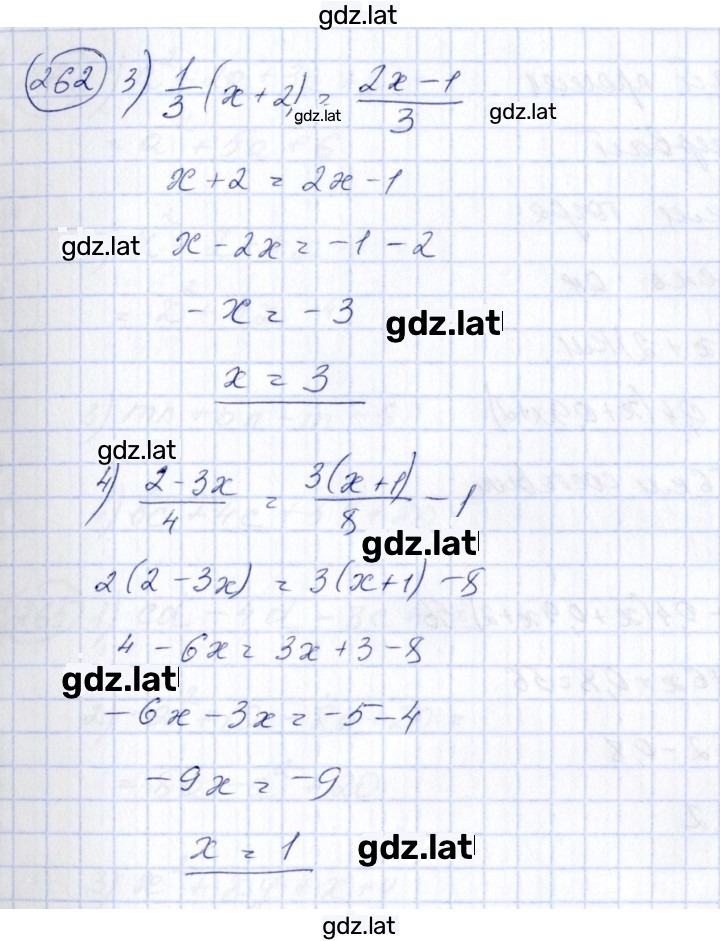 gdz.lat
262 3) 1/3 (x+2) = (2x-1)/3
gdz.lat gdz.lat
x+2 = 2x-1
gdz.lat x-2x = -1-2
-x = -3 gdz.lat
x = 3
gdz.lat
4) (2-3x)/4 = 3(x+1)/8 - 1
gdz.lat
2(2-3x) = 3(x+1) -8
4 - 6x = 3x+3-8
gdz.lat
-6x-3x = -5-4
-9x = -9
x = 1 gdz.lat
gdz.lat